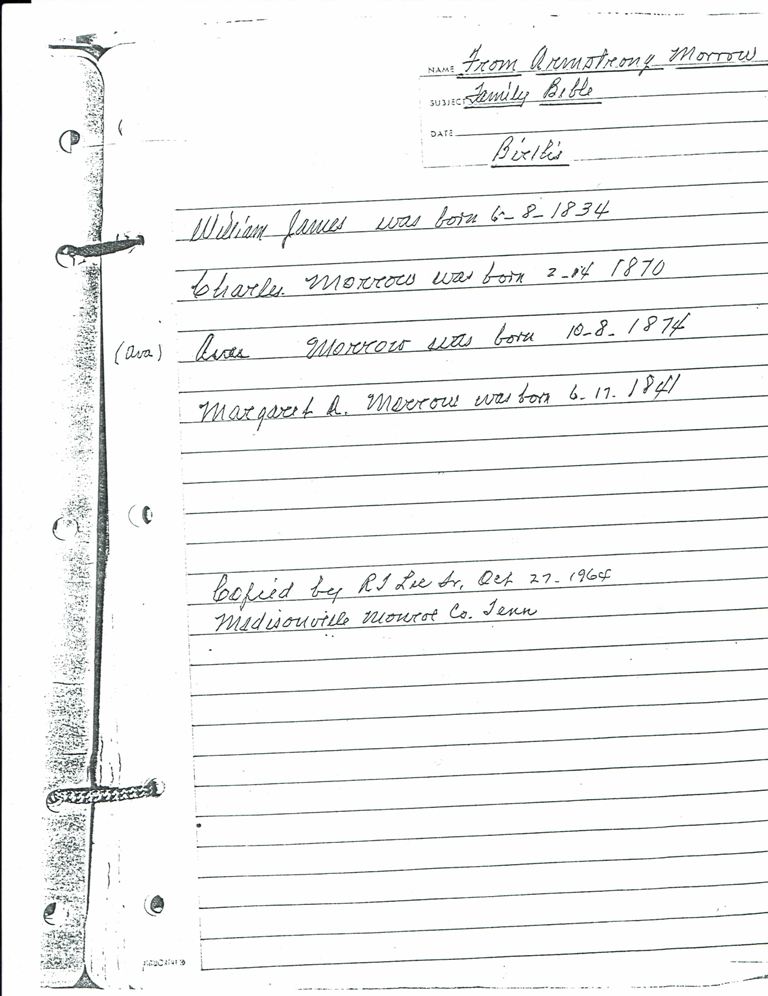 NAME From Armstrong Morrow
SUBJECT Family Bible
DATE
Births
William James was born 6-8-1834
Charles Morrow was born 2-14 1870
(Ava) Avas Morrow was born 10-8-1874
Margaret A. Morrow was born 6-17-1841
Copied by R I Lee Sr, Oct 27-1964
Madisonville Monroe Co. Tenn